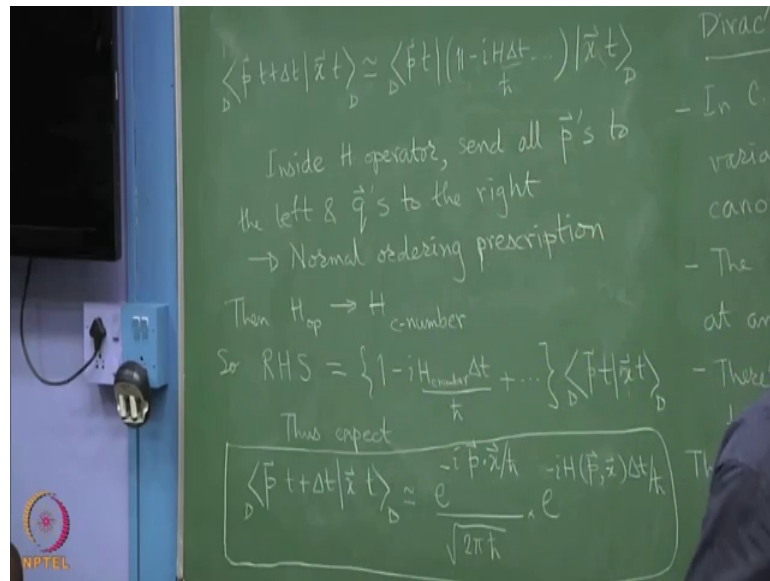 D⟨p⃗ t+Δt|x⃗ t⟩D ≃ D⟨p⃗ t|(𝟙 - iHΔt/ħ ...)|x⃗ t⟩D
Inside H operator, send all p⃗'s to
the left & q⃗'s to the right
→ Normal ordering prescription
Then H_op → H_c-number
So RHS = {1 - i H_cnumber Δt/ħ + ...} D⟨p⃗ t|x⃗ t⟩D
Thus expect
D⟨p⃗ t+Δt|x⃗ t⟩D ≃ e^{-i p⃗·x⃗/ħ}/√(2πħ) · e^{-iH(p⃗,x⃗)Δt/ħ}
Dirac'
- In C.
varia
cano
- The
at an
- There
Th
NPTEL